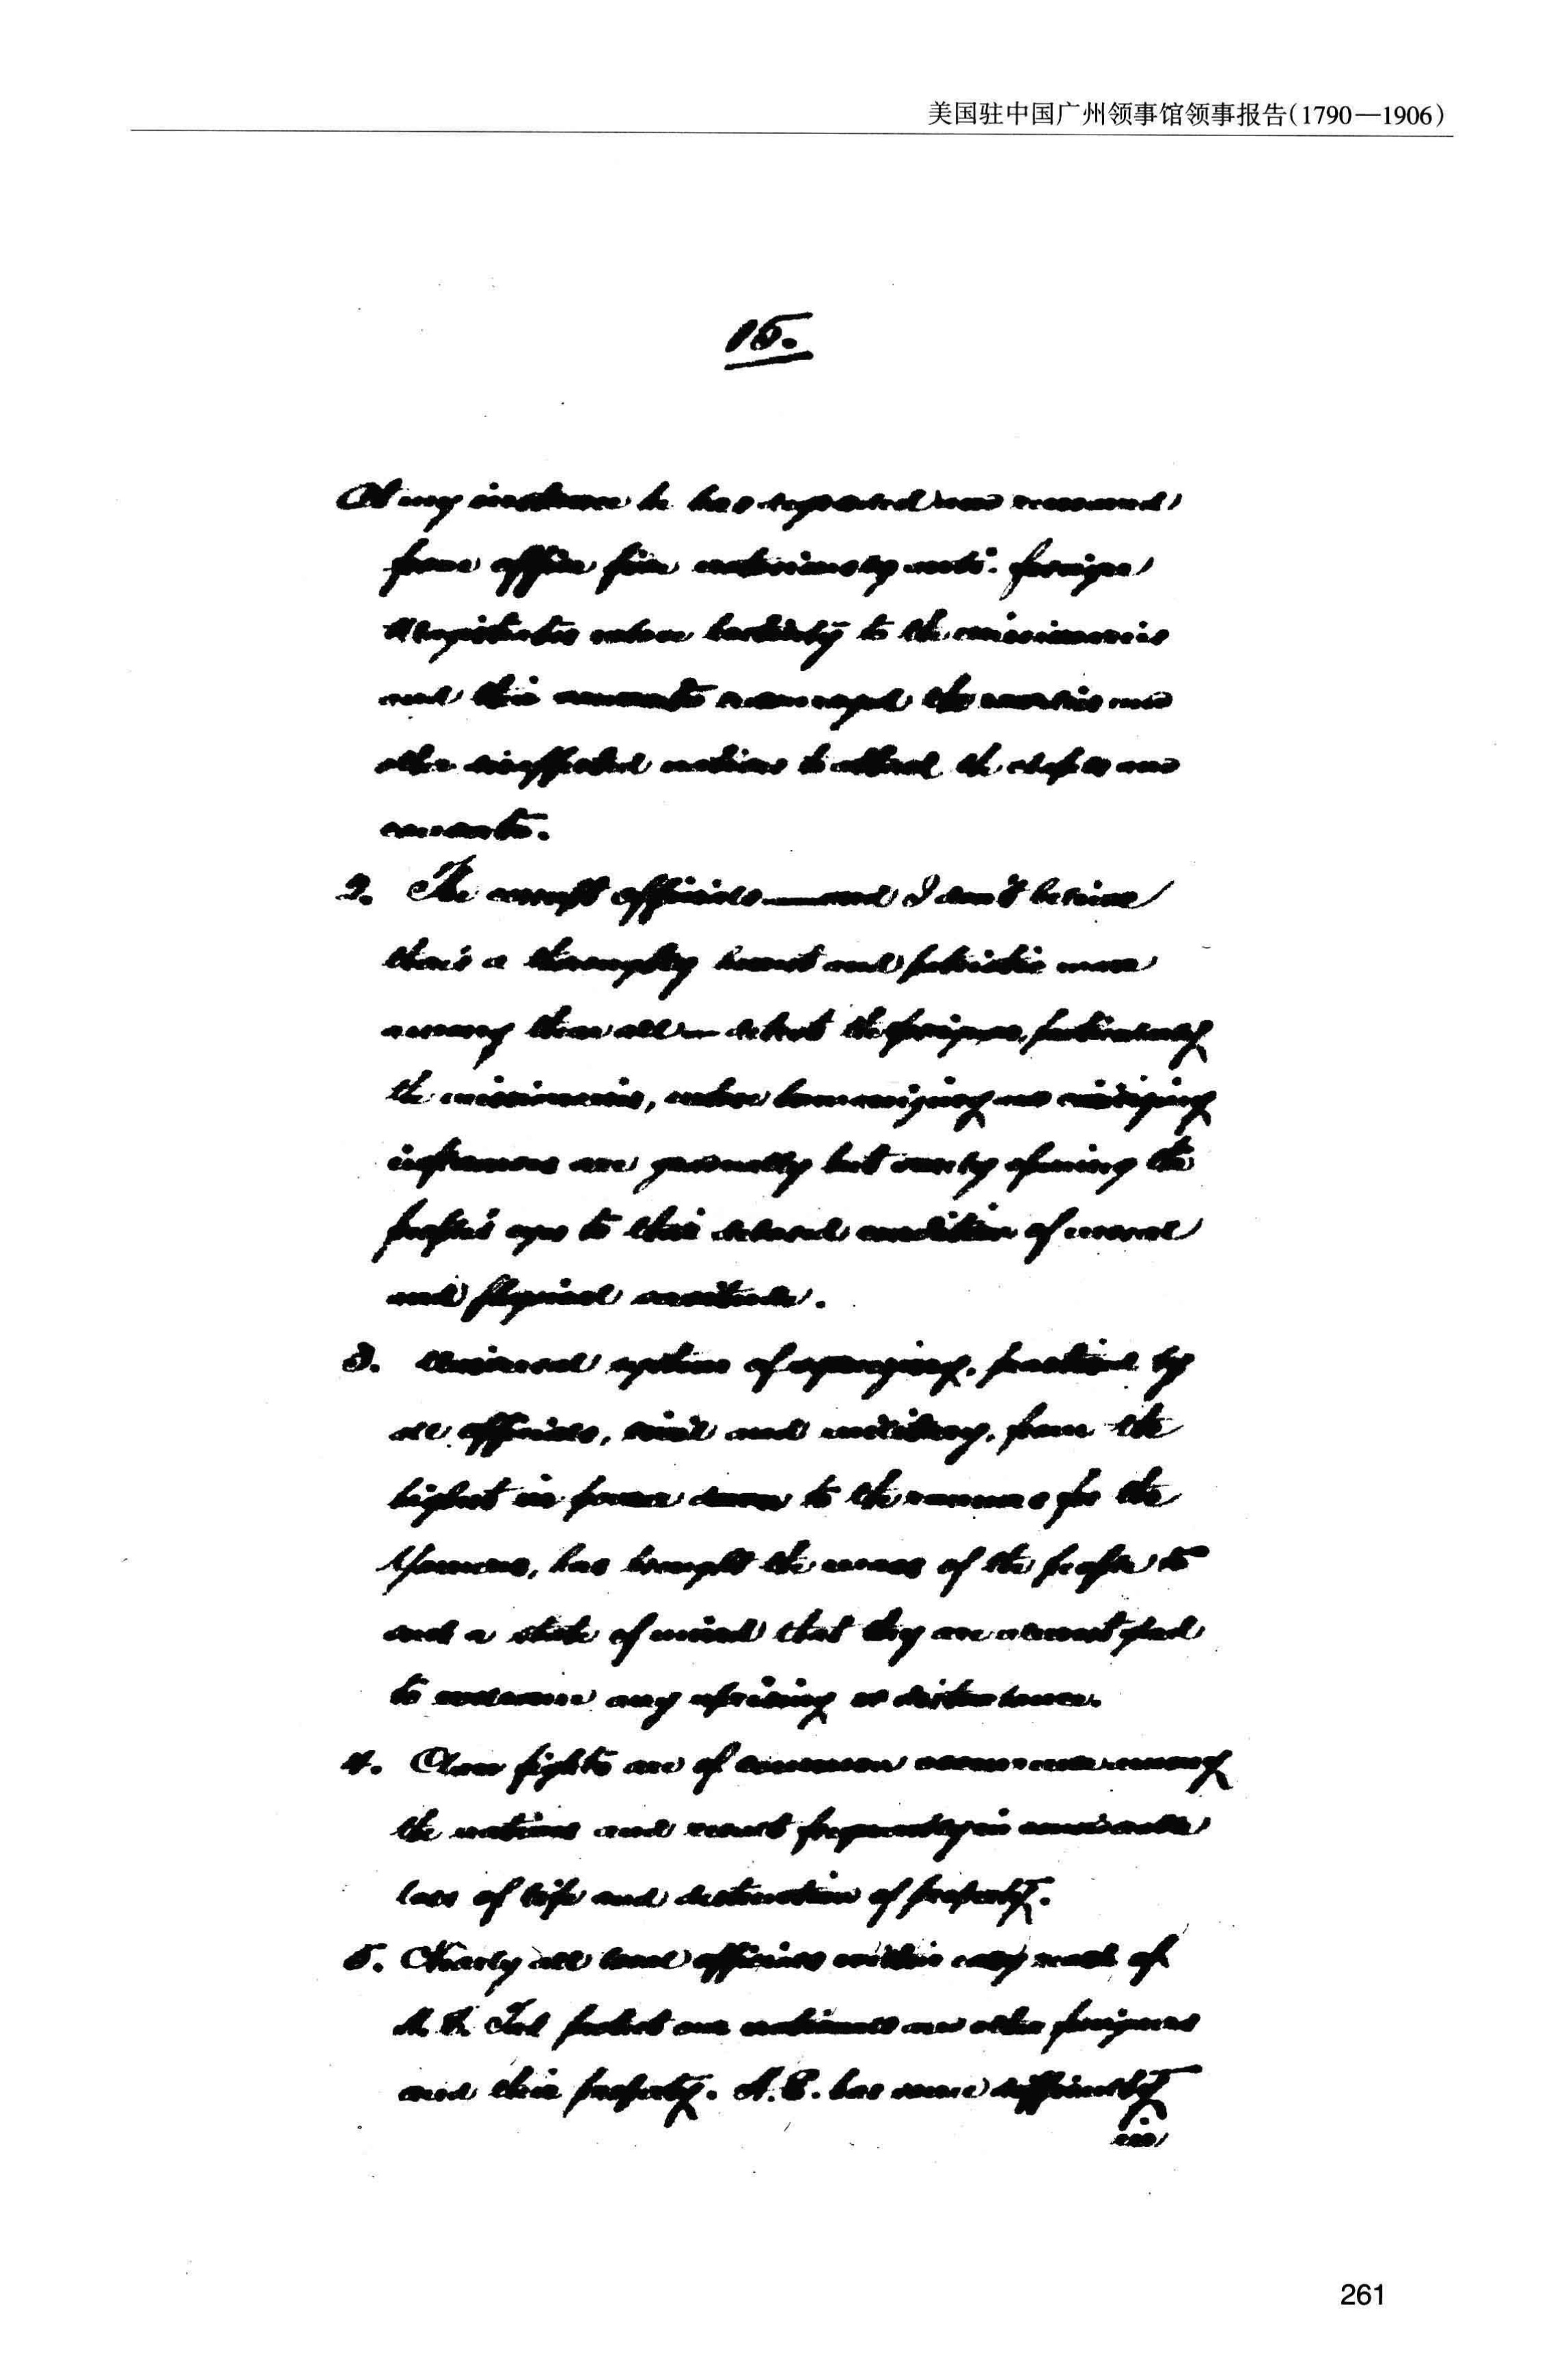 美国驻中国广州领事馆领事报告(1790—1906)
15.
At my instance he has removed
from office five notoriously anti-foreign
Magistrates whose hostility to the missionaries
and their converts encouraged the
other disaffected natives to attack the chapels and
converts.
2. The corrupt officials — and I don't believe
there's a thoroughly honest and patriotic man
among them all — detest the foreigner, particularly
the missionaries, whose humanizing and civilizing
influences are gradually but surely opening the
people's eyes to their debased condition of moral
and physical servitude.
3. Universal system of squeezing, practiced by
all officials, civil and military, from the
highest in power down to the runners for the
Yamens, has brought the mass of the people to
such a state of mind that they are almost glad
to welcome any uprising or disturbance.
4. Clan fights are of common occurrence among
the natives and result frequently in considerable
loss of life and destruction of property.
5. Nearly all local officials within easy reach of
protect our nationals and other foreigners
and their property. H.E. has some difficulty
in
261